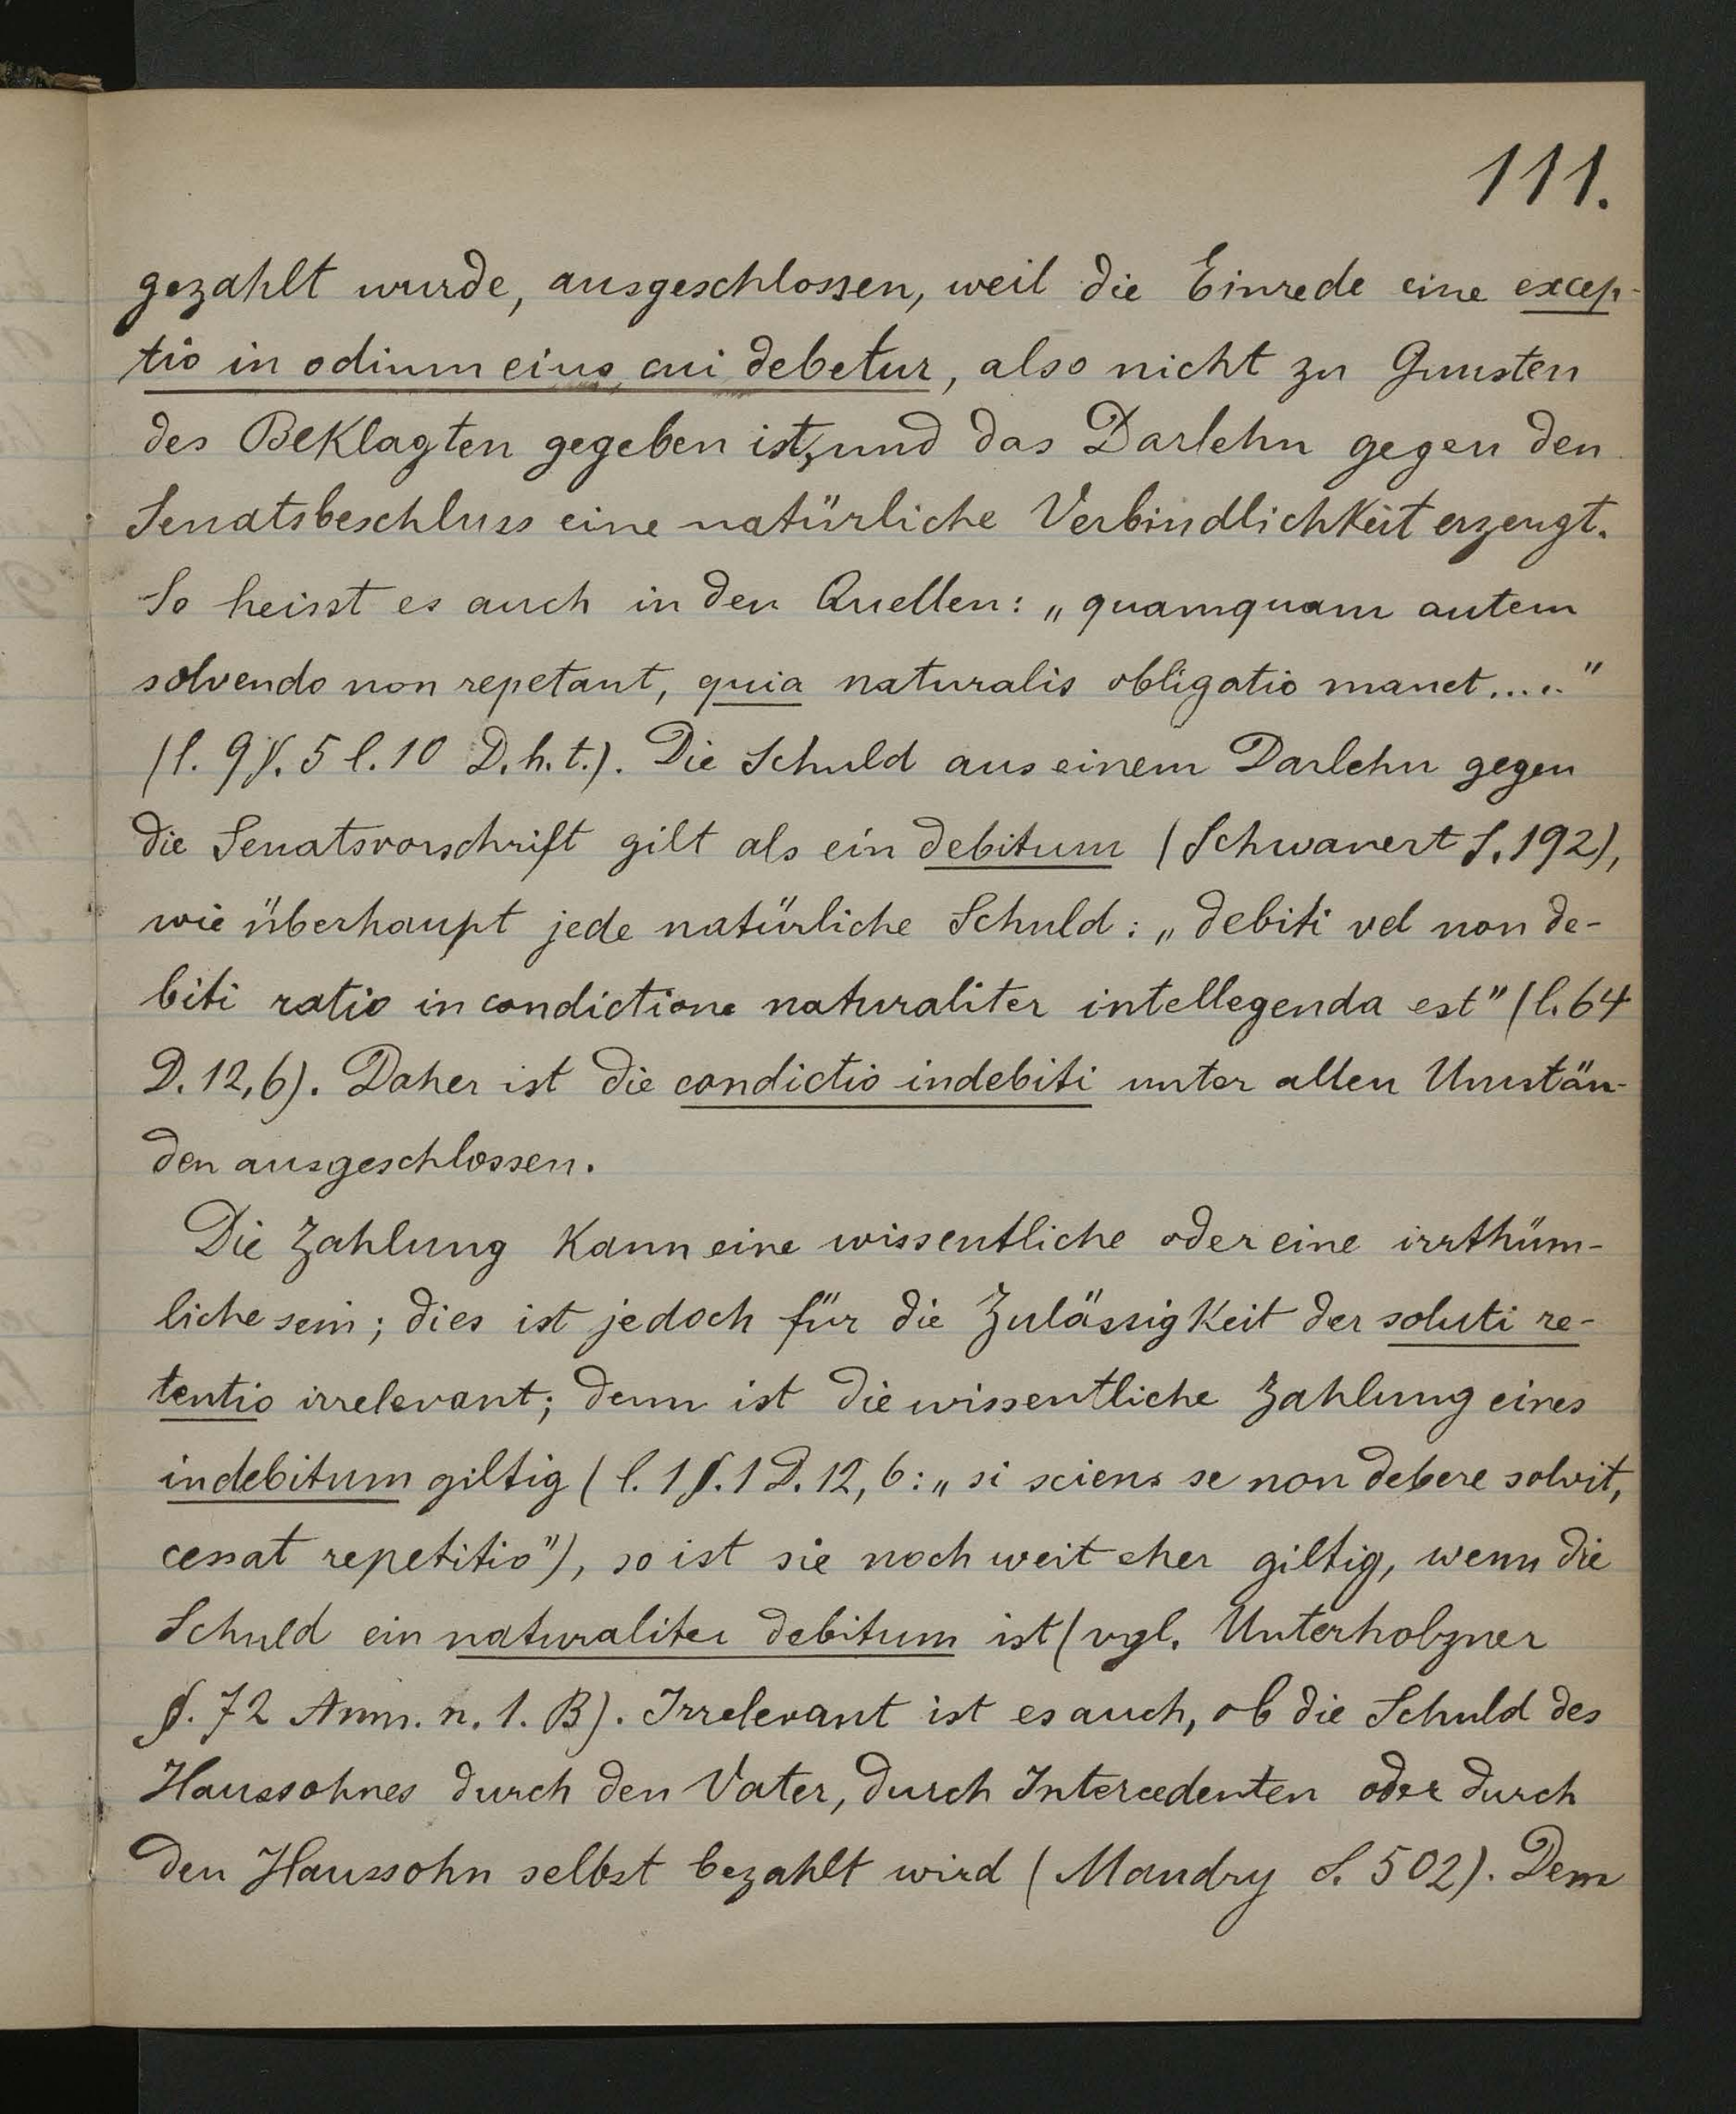 111.
gezahlt wurde, ausgeschlossen, weil die Einrede eine excep-
tio in odium eius, cui debetur, also nicht zu Gunsten
des Beklagten gegeben ist, und das Darlehn gegen den
Senatsbeschluss eine natürliche Verbindlichkeit erzeugt.
So heisst es auch in den Quellen: „quamquam autem
solvendo non repetant, quia naturalis obligatio manet....."
(l. 9 §. 5 l. 10 D. h. t.). Die Schuld aus einem Darlehn gegen
die Senatsvorschrift gilt als ein debitum (Schwanert S. 192),
wie überhaupt jede natürliche Schuld: „debiti vel non de-
biti ratio in condictione naturaliter intellegenda est" (l. 64
D. 12, 6). Daher ist die condictio indebiti unter allen Umstän-
den ausgeschlossen.
Die Zahlung kann eine wissentliche oder eine irrthüm-
liche sein; dies ist jedoch für die Zulässigkeit der soluti re-
tentio irrelevant; denn ist die wissentliche Zahlung eines
indebitum giltig (l. 1 §. 1 D. 12, 6: „si sciens se non debere solvit,
cessat repetitio"), so ist sie noch weit eher giltig, wenn die
Schuld ein naturaliter debitum ist (vgl. Unterholzner
§. 72 Anm. n. 1. B). Irrelevant ist es auch, ob die Schuld des
Haussohnes durch den Vater, durch Intercedenten oder durch
den Haussohn selbst bezahlt wird (Mandry S. 502). Dem